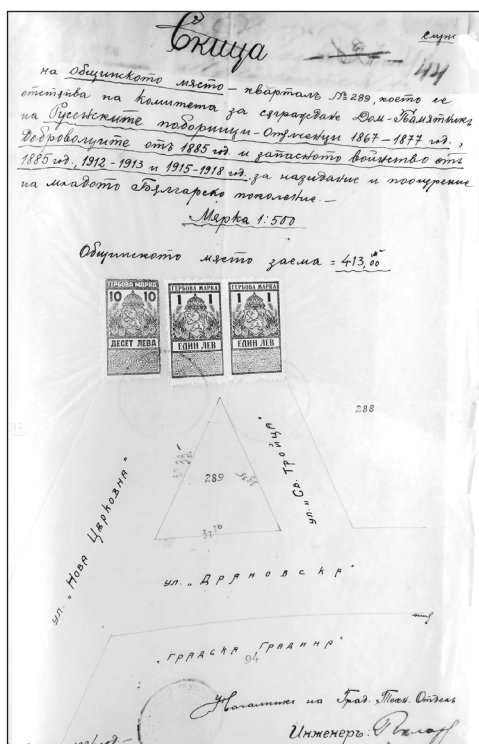 Скица
44
на общинското място – кварталъ № 289, което се
отстъпва на Комитета за съграждане Дом-Паметникъ
на Русенските поборници-опълченци 1867–1877 год.,
Доброволците отъ 1885 год. и запасното войнство отъ
1885 год., 1912-1913 и 1915-1918 год. за назидание и поощрение
на младото Българско поколение. –
Мярка 1:500
Общинското място заема = 413,00 м²
ГЕРБОВА МАРКА ГЕРБОВА МАРКА ГЕРБОВА МАРКА
10 10 1 1 1 1
ДЕСЕТ ЛЕВА ЕДИН ЛЕВ ЕДИН ЛЕВ
288
289
ул. „Нова Църковна"
ул. „Св. Тройца"
ул. „Дряновска"
„Градска градина"
94
Началникъ на Град. Техн. Отделъ
Инженеръ: